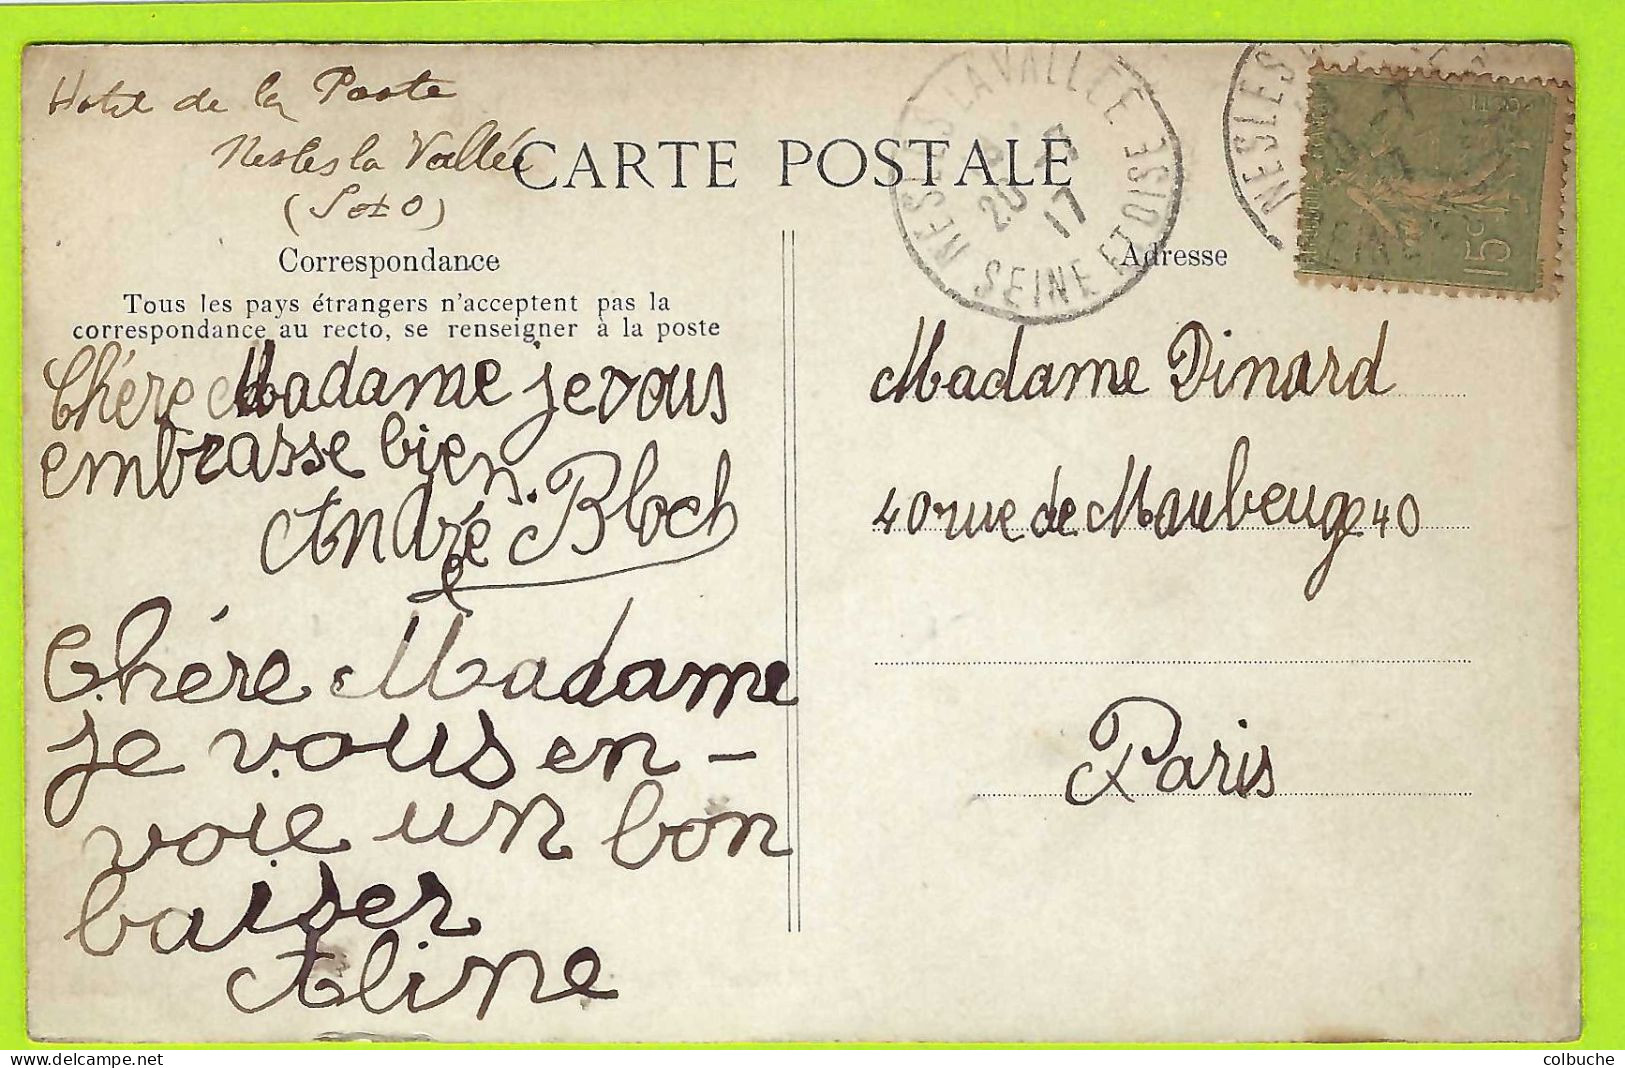 Hotel de la Poste
Nesles la Vallée
(S et O)
CARTE POSTALE
NESLES LA VALLÉE
20
17
SEINE ET OISE
NESLES
15c
Correspondance
Adresse
Tous les pays étrangers n'acceptent pas la
correspondance au recto, se renseigner à la poste
Chère Madame je vous
embrasse bien.
André Bloch
Chère Madame
je vous en-
voie un bon
baiser
Aline
Madame Dinard
40 rue de Maubeuge 40
Paris
colbuche